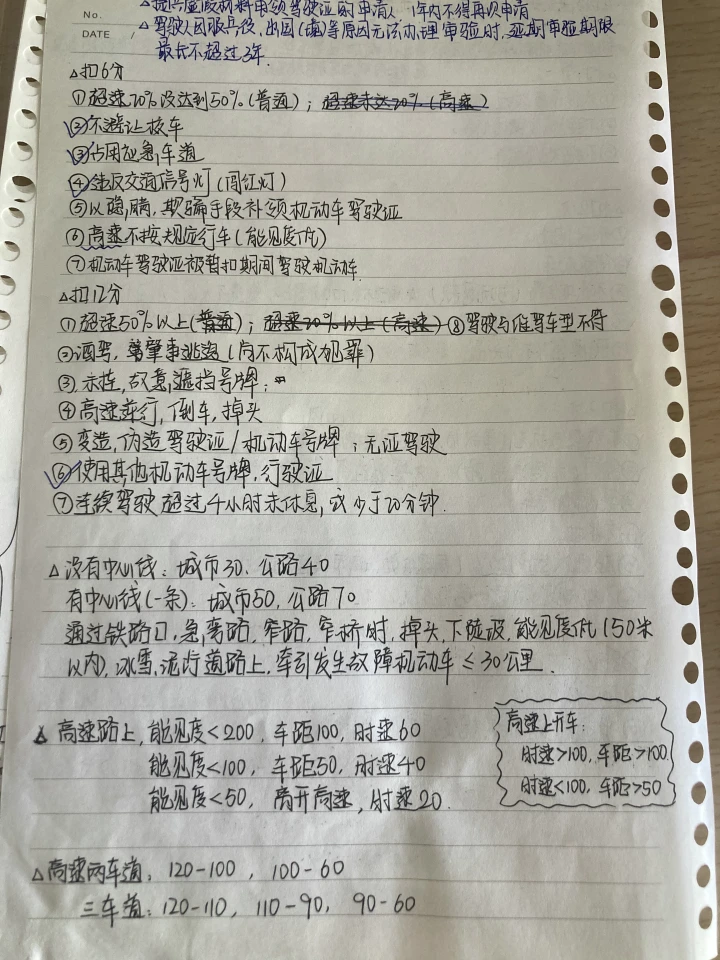 No.
△提供虚假材料申领驾驶证的申请人 1年内不得再次申请
DATE /
△驾驶人因服兵役，出国(境)等原因无法办理审验时，延期审验期限
最长不超过3年.
△扣6分
①超速20%没达到50%(普通)；超速未达20%(高速)
②不避让校车
③占用应急车道
④违反交通信号灯(闯红灯)
⑤以隐瞒，欺骗手段补领机动车驾驶证
⑥高速不按规定行车(能见度低)
⑦机动车驾驶证被暂扣期间驾驶机动车
△扣12分
①超速50%以上(普通)；超速20%以上(高速) ⑧驾驶与准驾车型不符
②酒驾，肇事逃逸(尚不构成犯罪)
③未挂，故意遮挡号牌；
④高速逆行，倒车，掉头
⑤变造，伪造驾驶证/机动车号牌；无证驾驶
⑥使用其他机动车号牌，行驶证
⑦连续驾驶超过4小时未休息，或少于20分钟.
△没有中心线：城市30，公路40
有中心线(一条)：城市50，公路70
通过铁路口，急弯路，窄路，窄桥时，掉头，下陡坡，能见度低(50米
以内)，冰雪，泥泞道路上，牵引发生故障机动车≤30公里.
△高速路上，能见度<200，车距100，时速60
能见度<100，车距50，时速40
能见度<50，离开高速，时速20.
高速上开车：
时速>100，车距>100
时速<100，车距>50
△高速两车道：120-100，100-60
三车道：120-110，110-90，90-60